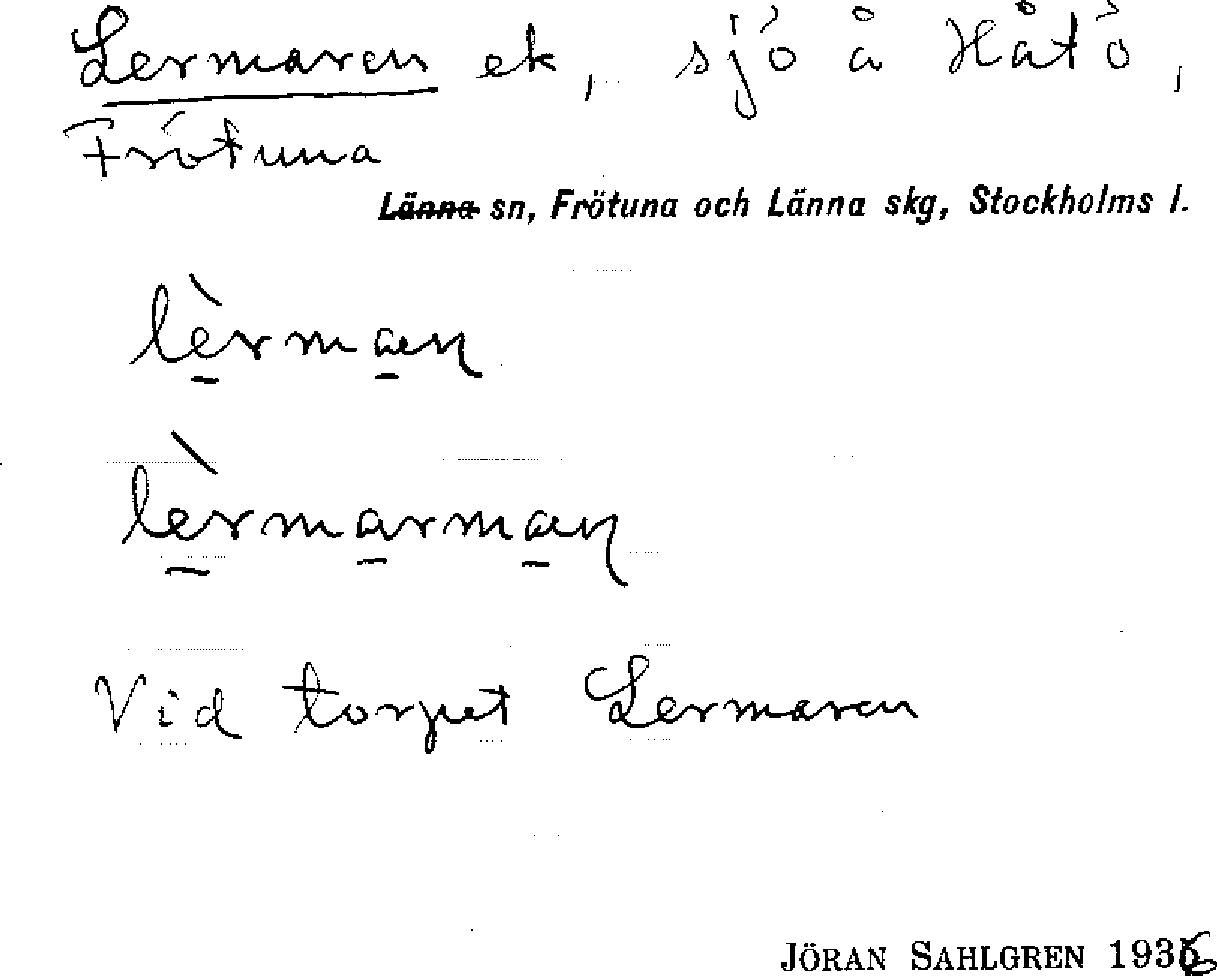 Lermaren ek, sjö å Håtö,
Frötuna
Länna sn, Frötuna och Länna skg, Stockholms l.
lèrmaɐn
lèrmarman
Vid torpet Lermaren
JÖRAN SAHLGREN 1936